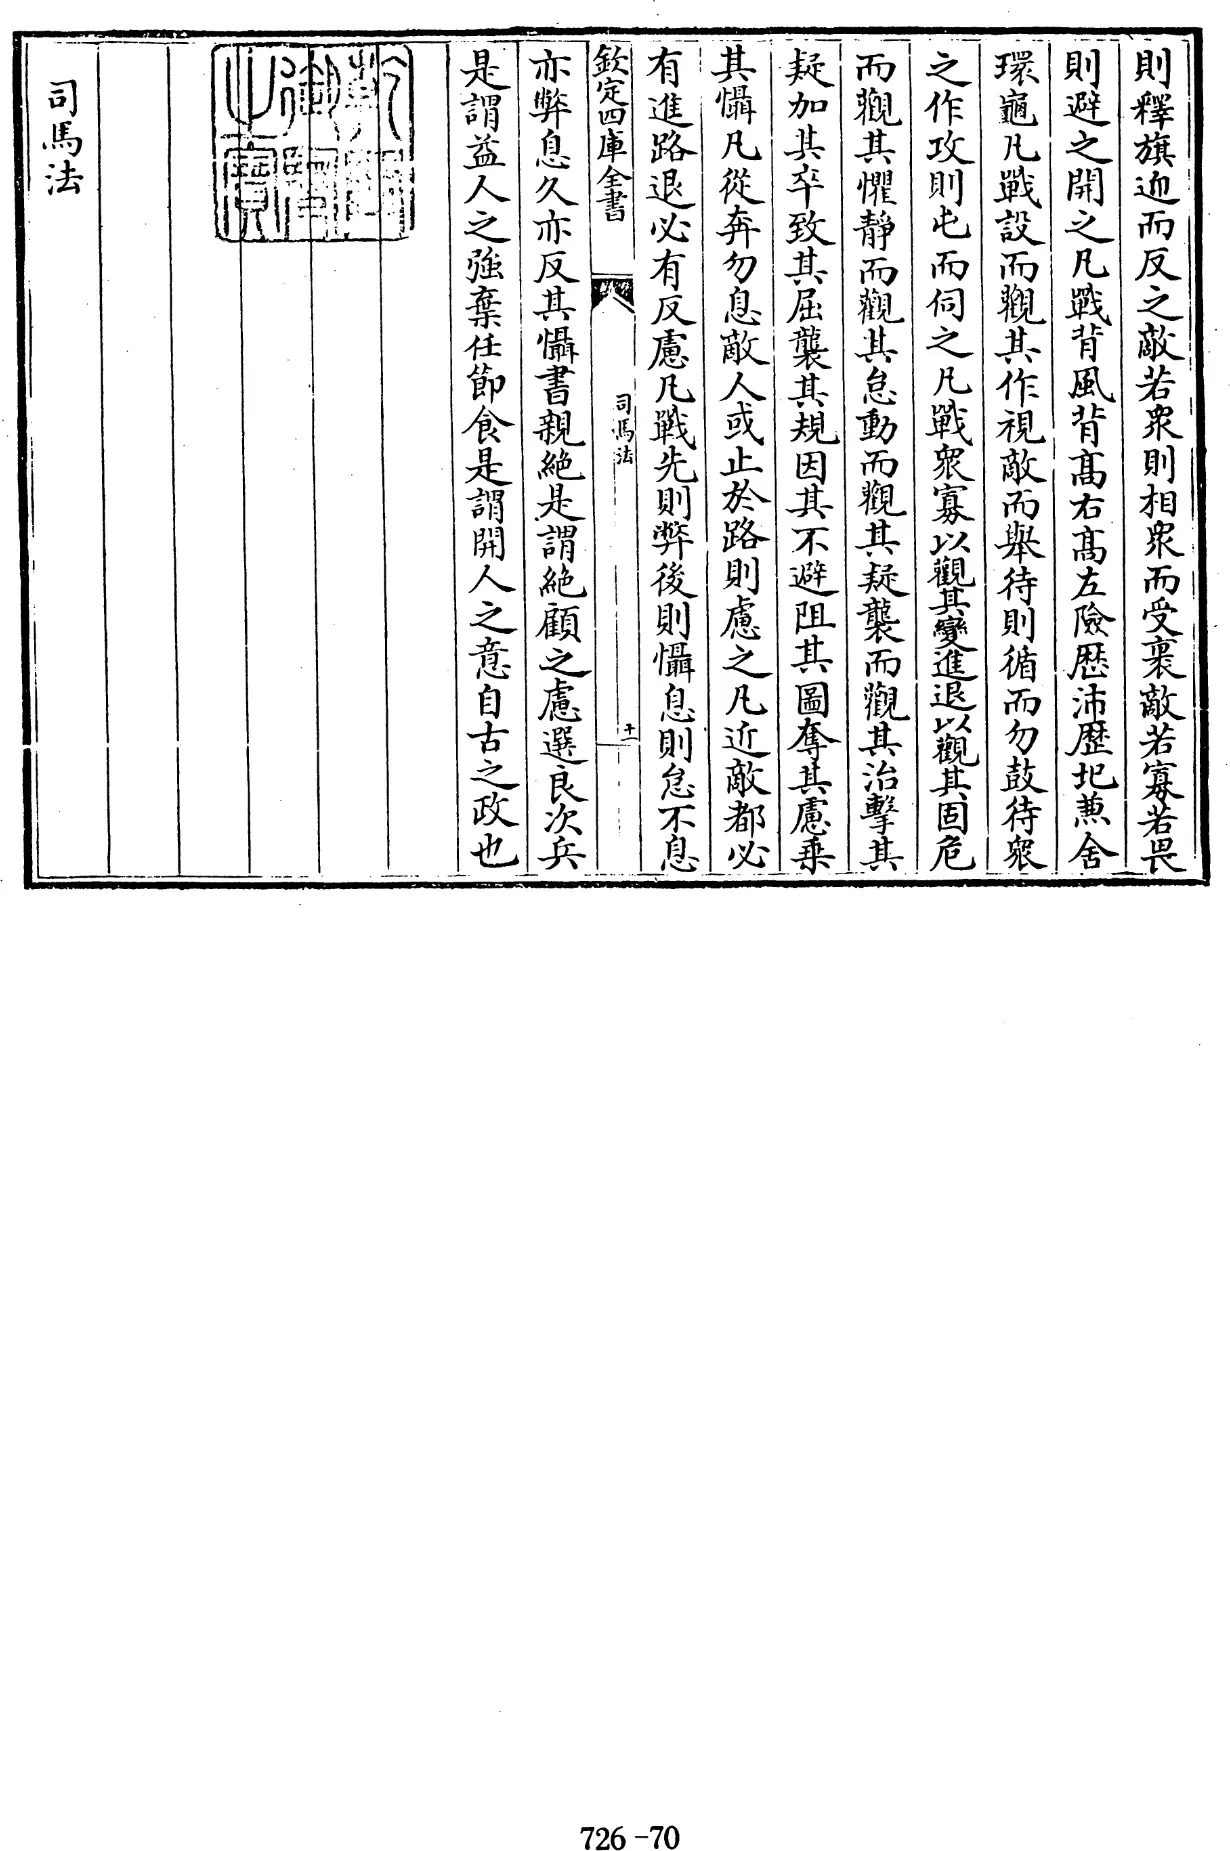 則釋旗迎而反之敵若衆則相衆而受裹敵若寡若畏
則避之開之凡戰背風背髙右髙左險歴沛歴圯兼舍
環龜凡戰設而觀其作視敵而舉待則循而勿鼓待衆
之作攻則屯而伺之凡戰衆寡以觀其變進退以觀其固危
而觀其懼靜而觀其怠動而觀其疑襲而觀其治擊其
疑加其卒致其屈襲其規因其不避阻其圖奪其慮乗
其懾凡從奔勿息敵人或止於路則慮之凡近敵都必
有進路退必有反慮凡戰先則弊後則懾息則怠不息
欽定四庫全書
司馬法
十一
亦弊息久亦反其懾書親絶是謂絶顧之慮選良次兵
是謂益人之强棄任節食是謂開人之意自古之政也
司馬法
726-70